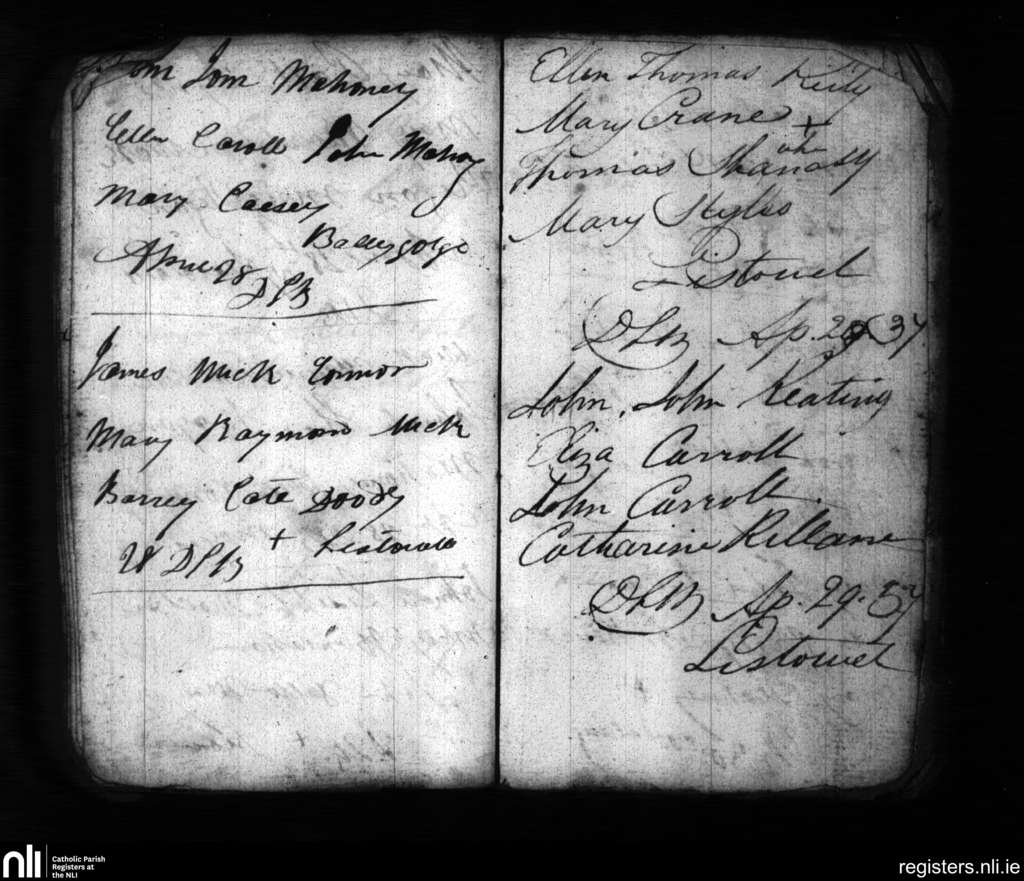 Tom Tom Mahoney
Ellen Caroll John Mahony
Mary Caesey
Ballygolge
April 28
DLB
James Mick Connor
Mary Raymond Mick
Barrey Cate Doody
+ Listowell
DLB
Ellen Thomas
Mary Crane +
Thomas
Mary Styles
Listowel
DLB Ap. 37.
John, John Keating
Eliza Carroll
John Carroll
Catharine Killane
DLB Ap. 29. 37
Listowel
nli
Catholic Parish
Registers at
the NLI
registers.nli.ie